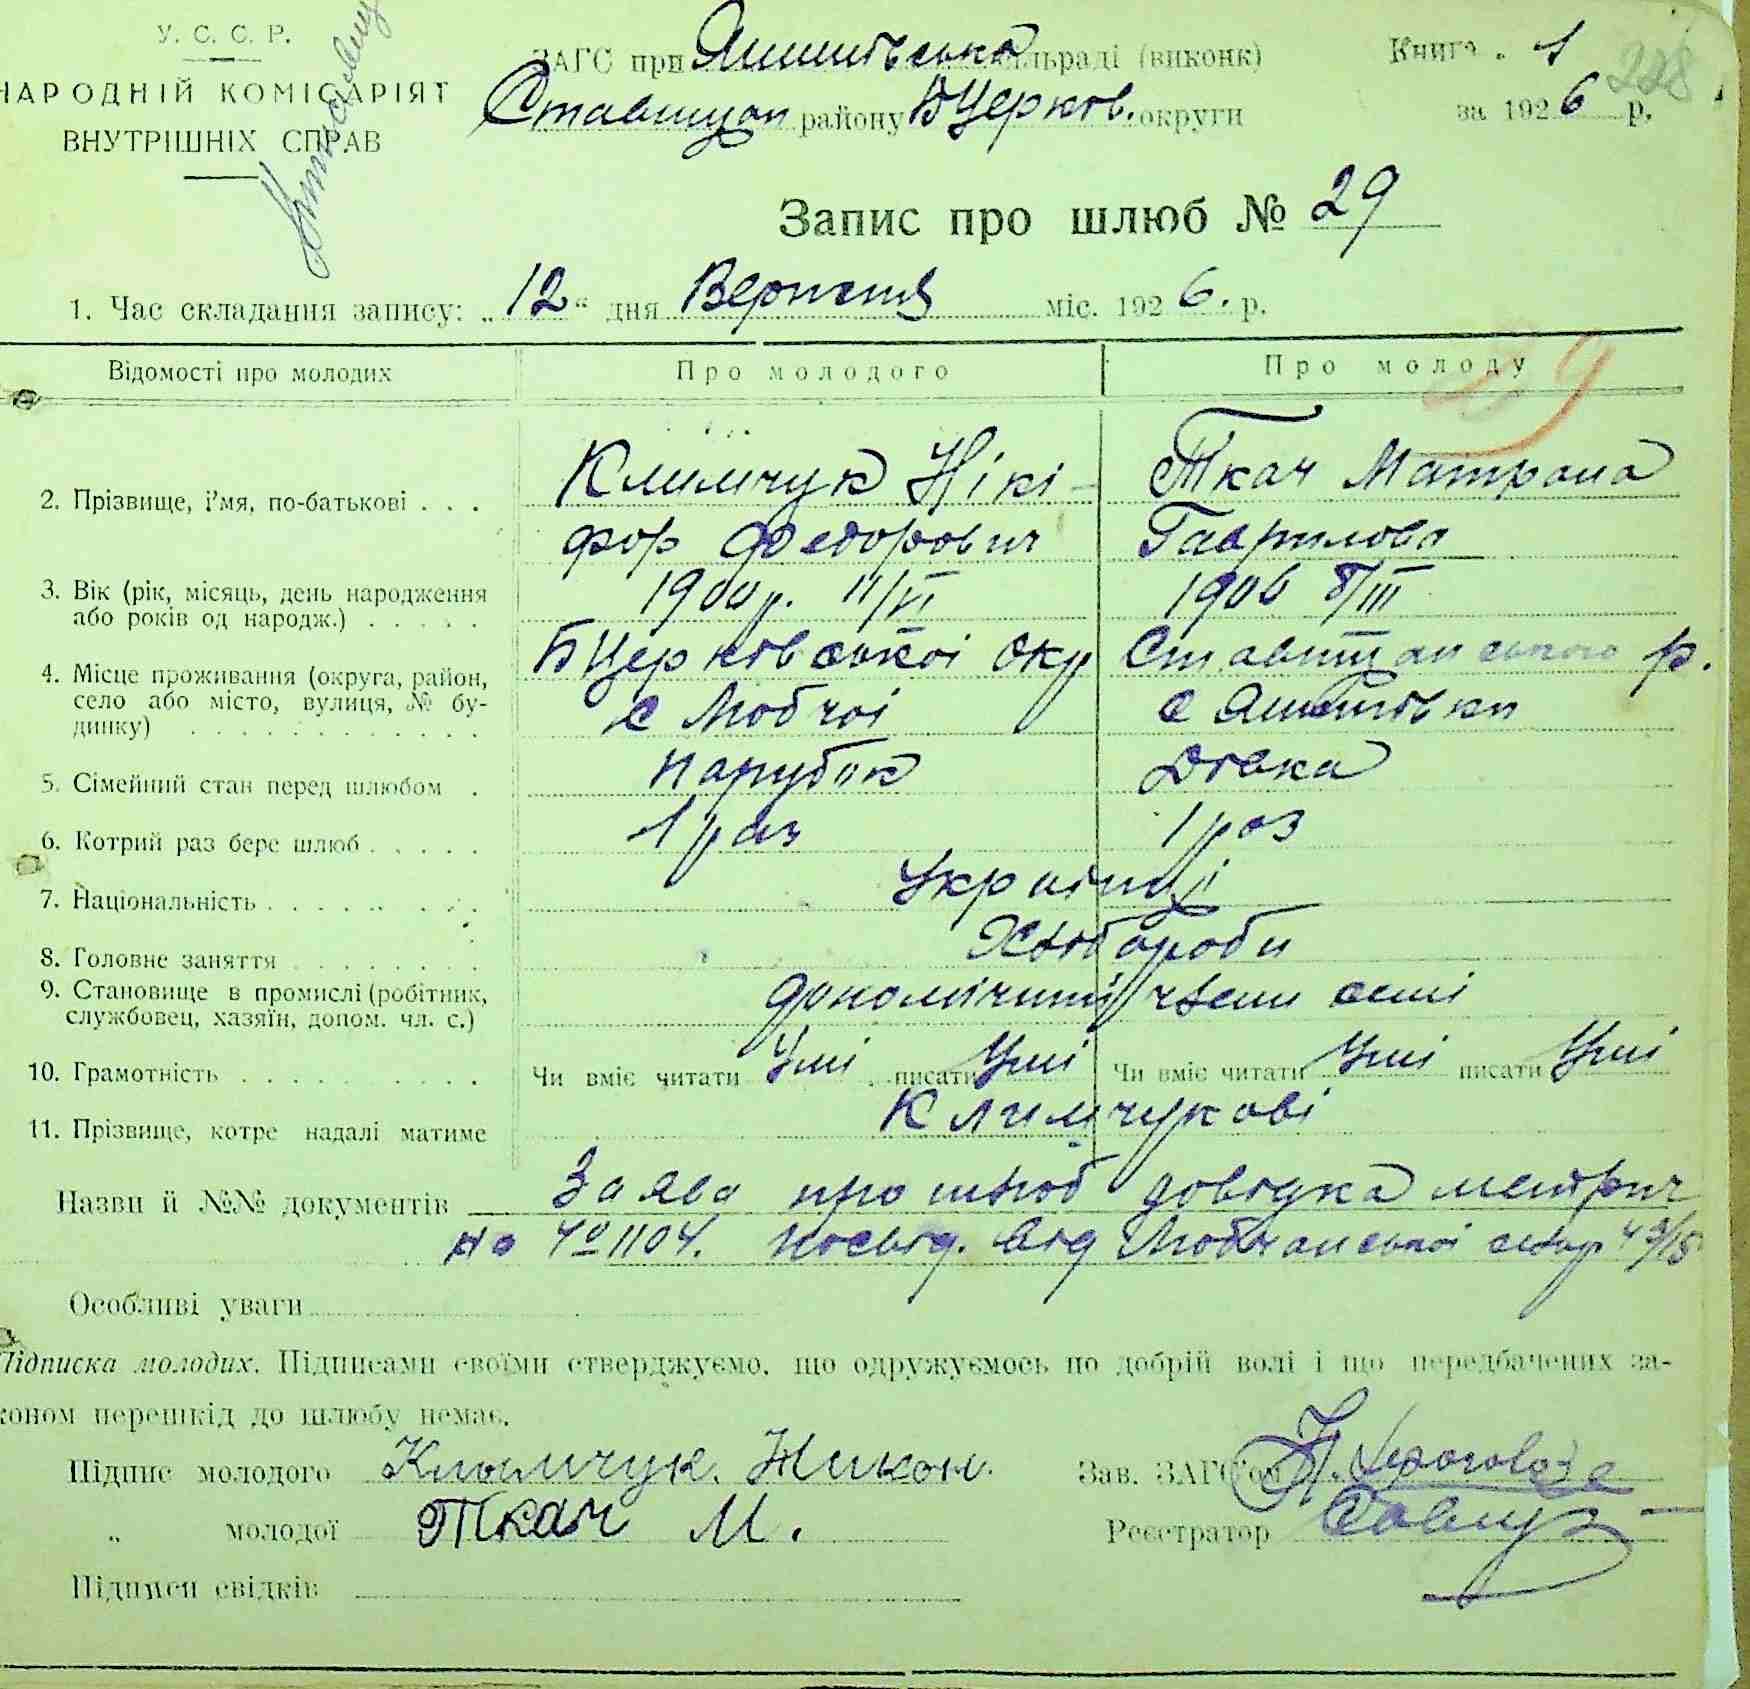 У. С. С. Р.
НАРОДНІЙ КОМІСАРІЯТ
ВНУТРІШНІХ СПРАВ
ЗАГС при сільраді (виконк)
Ставищан району БЦерков. округи
Книга 1
за 1926 р.
228
Запис про шлюб № 29
1. Час складання запису: „12“ дня Вересня міс. 1926. р.
Відомості про молодих Про молодого Про молоду
29
2. Прізвище, і'мя, по-батькові . . . Климчук Нікі- Ткач Матрона
фор Федорович Гаврилова
3. Вік (рік, місяць, день народження 1900 р. 11/VI 1906 8/III
або років од народж.) . . . . .
4. Місце проживання (округа, район, БЦерковської окр Ставищанського р.
село або місто, вулиця, № бу- с Любчої с Яшитівки
динку) . . . . . . . . . . . .
5. Сімейний стан перед шлюбом . парубок Дівка
6. Котрий раз бере шлюб . . . . . 1 раз 1 раз
7. Національність . . . . . . . . Українці
8. Головне заняття . . . . . . . . Хлібороби
9. Становище в промислі (робітник, допомічний члени семі
службовец, хазяїн, допом. чл. с.)
10. Грамотність . . . . . . . . . . Чи вміє читати Умі писати Умі Чи вміє читати Умі писати Умі
11. Прізвище, котре надалі матиме Климчукові
Назви й №№ документів Заява про шлюб довідка метрич
на № 1104. посвід. від Любчанської
Особливі уваги
Підписка молодих. Підписами своїми стверджуємо, що одружуємось по добрій волі і що передбачених за-
коном перешкід до шлюбу немає.
Підпис молодого Климчук. Никон. Зав. ЗАГС'ом
„ молодої Ткач М. Реєстратор
Підписи свідків